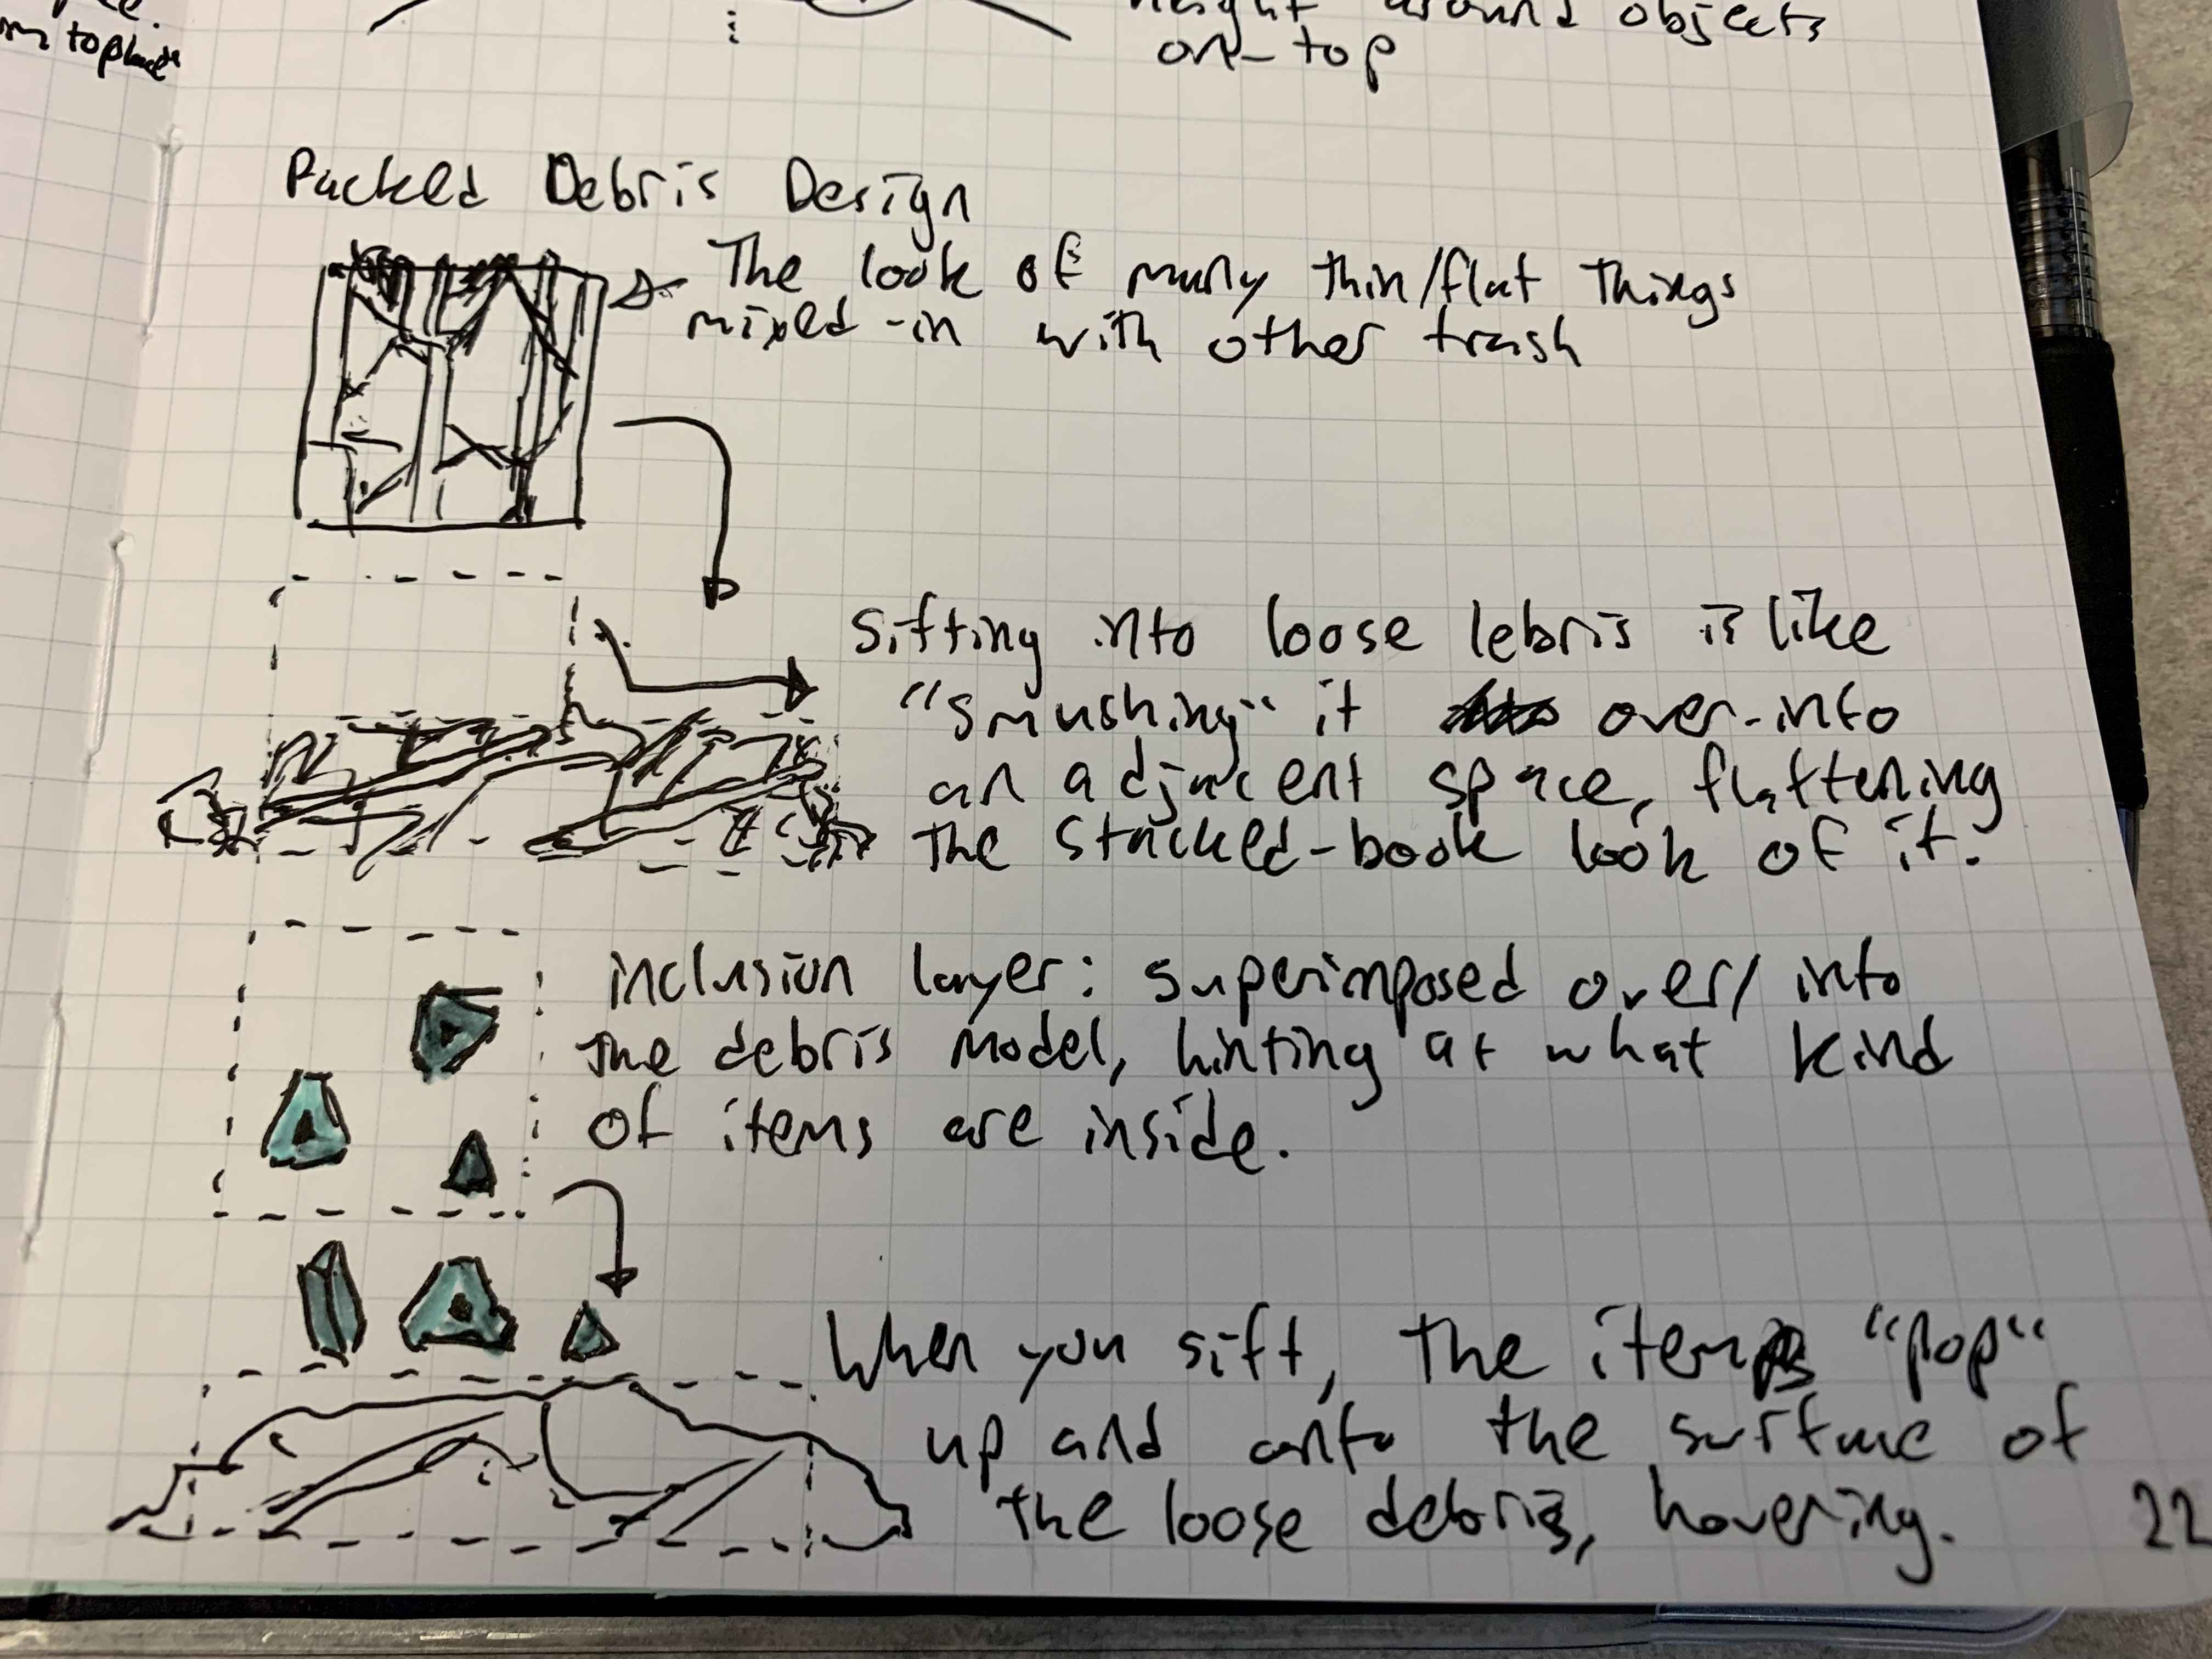 top
height around objects
on-top
Packed Debris Design
The look of many thin/flat things
mixed-in with other trash
Sifting into loose lebris is like
"smushing" it over-into
an adjacent space, flattening
the stacked-book look of it.
inclusion layer: superimposed over/into
the debris model, hinting at what kind
of items are inside.
When you sift, the items "pop"
up and onto the surface of
the loose debris, hovering.
22